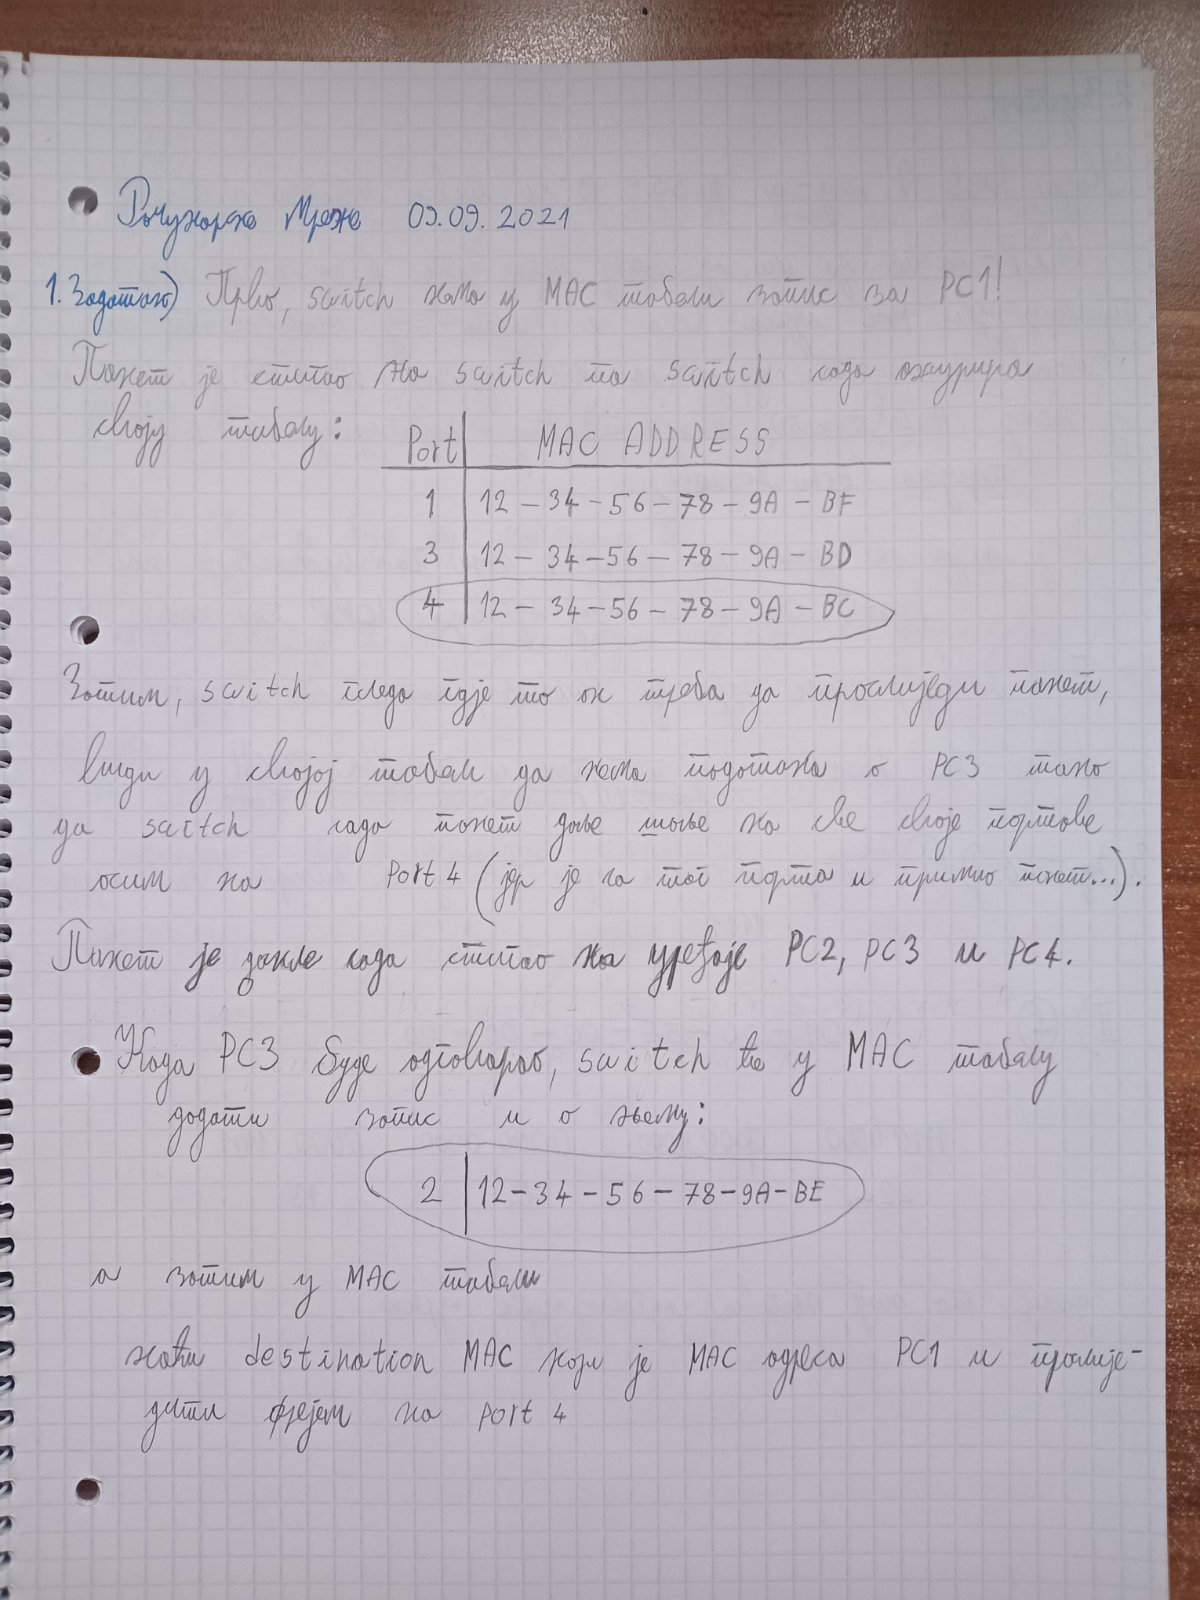 Рачунарске Мреже 09.09.2021
1. Задатак) Прво, switch нема у MAC табели запис за PC1!
Пакет је стигао на switch па switch сада ажурира
своју табелу:
Port MAC ADDRESS
1 12-34-56-78-9A-BF
3 12-34-56-78-9A-BD
4 12-34-56-78-9A-BC
Затим, switch гледа гдје то он треба да прослиједи пакет,
види у својој табели да нема података о PC3 тако
да switch сада пакет даље шаље на све своје портове
осим на Port 4 (јер је са тог порта и примио пакет...).
Пакет је дакле сада стигао на уређаје PC2, PC3 и PC4.
Када PC3 буде одговарао, switch ће у MAC табелу
додати запис и о њему:
2 12-34-56-78-9A-BE
а затим у MAC табели
наћи destination MAC који је MAC адреса PC1 и прослије-
дити фрејм на port 4